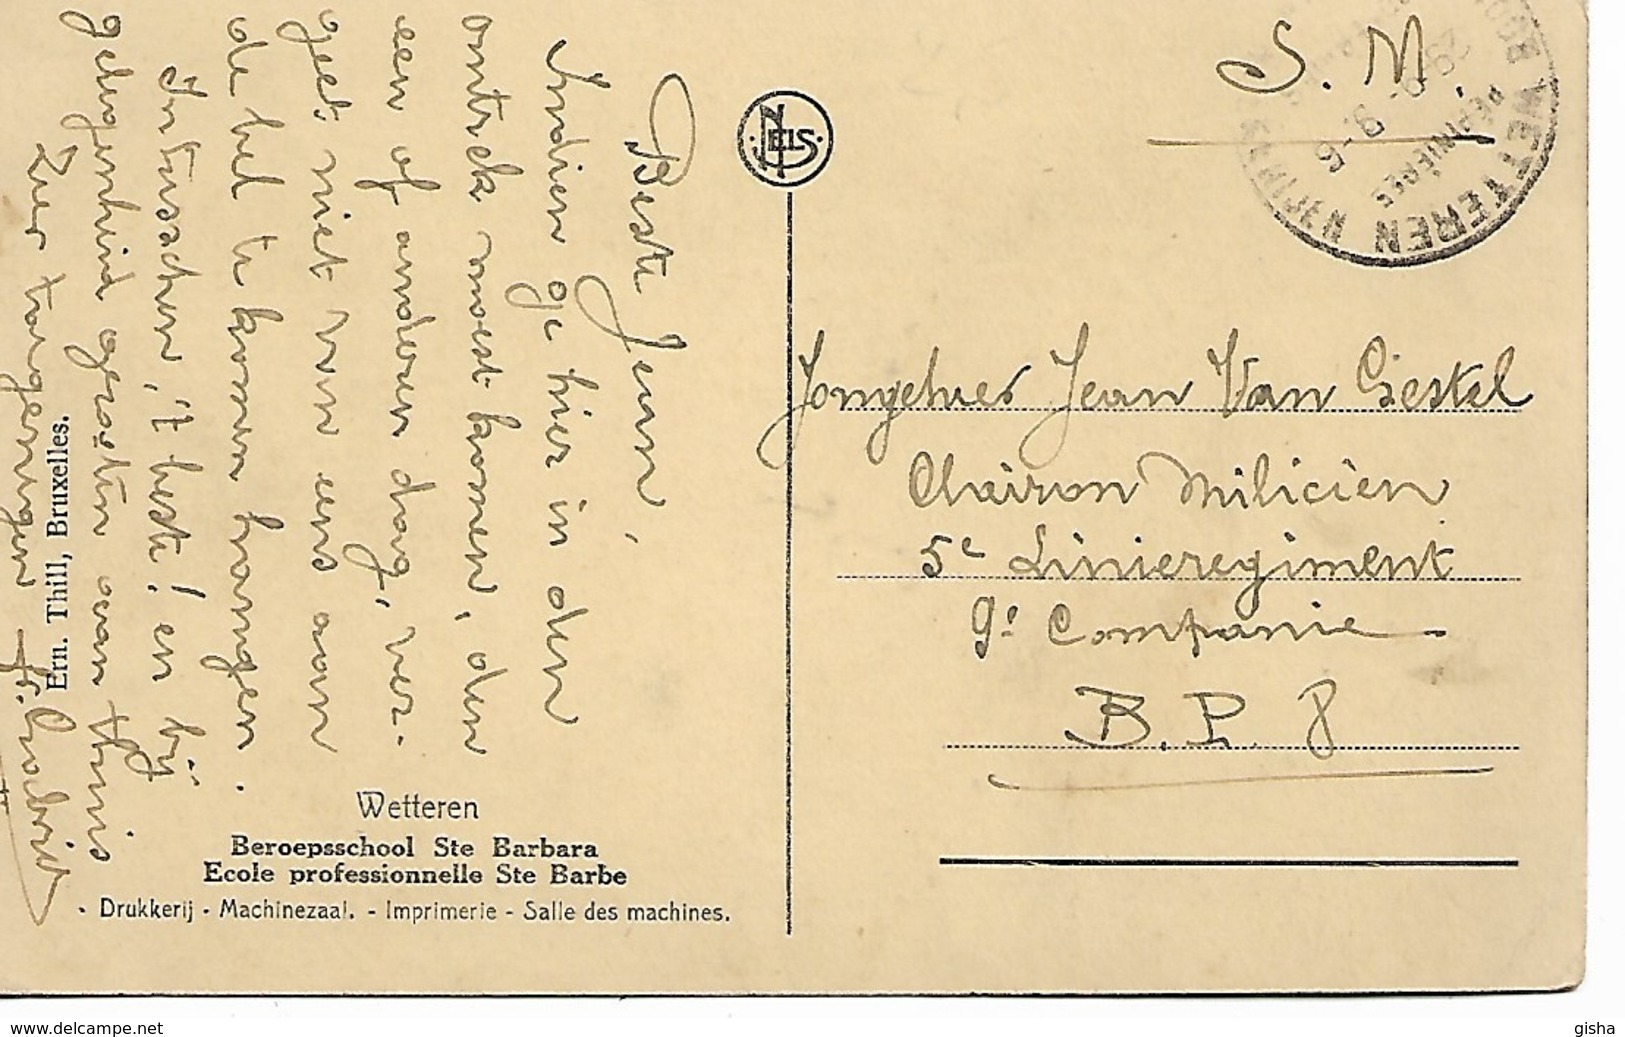 Beste Jean,
Indien ge hier in den
omtrek moest komen, den
een of anderen dag, ver-
geet niet van eens aan
de bel te komen hangen.
Intusschen, 't beste! en bij
gelegenheid groeten aan thuis
Zeer toegenegen
Fr.
Ern. Thill, Bruxelles.
Wetteren
Beroepsschool Ste Barbara
Ecole professionnelle Ste Barbe
- Drukkerij - Machinezaal. - Imprimerie - Salle des machines.
NELS
S. M.
WETTEREN
Jongeheer Jean Van Gestel
Clairon Milicien
5e Linieregiment
9e Companie
B. P. 8
www.delcampe.net
gisha